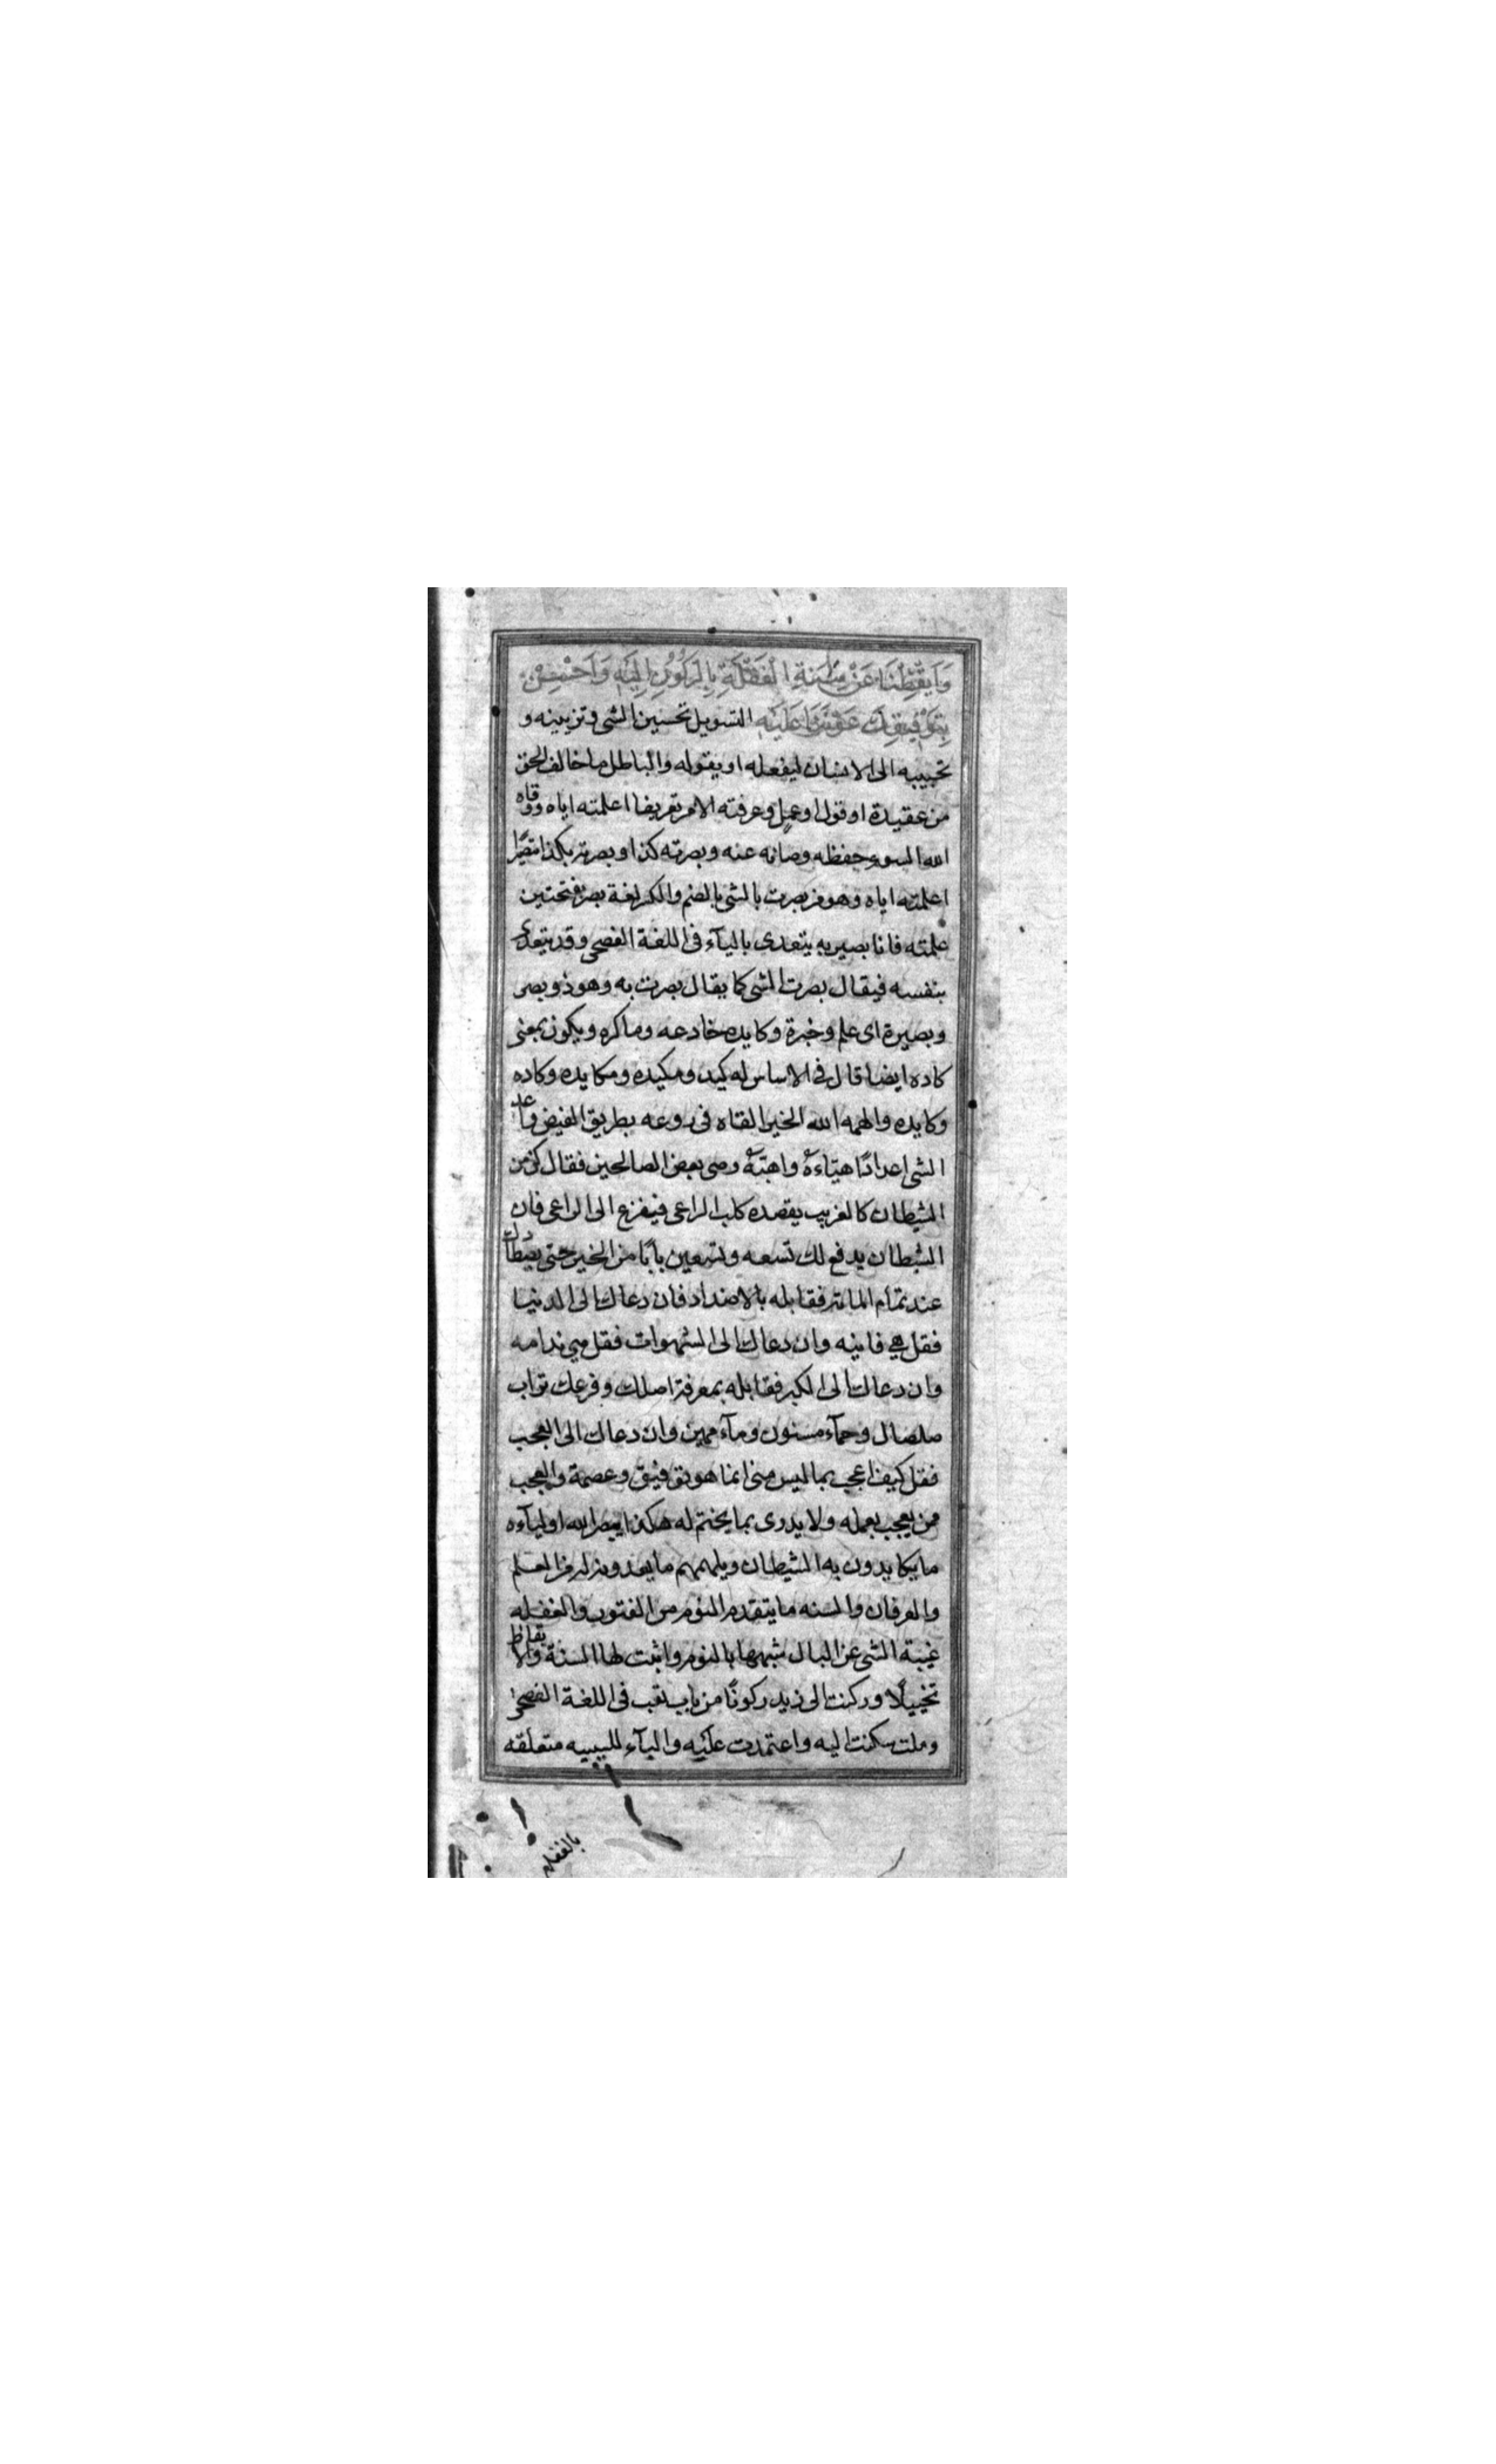 وَاَيْقِظْنَا عَنْ سِنَةِ الْغَفْلَةِ بِالرُّكُونِ اِلَيْهِ وَاَحْسِنْ
بِتَوْفِيقِكَ عَوْنَنَا عَلَيْهِ التسويل تحسين الشى وتزيينه و
تحبيبه الى الانسان ليفعله او يقوله والباطل ما خالف الحق
من عقيدة او قول او عمل وعرفته الامر تعريفا اعلمته اياه ووقاه
الله السوء حفظه وصانه عنه وبصرته كذا وبصرته بكذا تبصيرًا
اعلمته اياه وهو من بصرت بالشى بالضم والكسر لغة بصرًا بفتحتين
علمته فانا بصير به يتعدى بالبآء فى اللغة الفصحى وقد يتعدى
بنفسه فيقال بصرت الشى كما يقال بصرت به وهو ذو بصر
وبصيرة اى علم وخبرة وكايده خادعه وماكره ويكون بمعنى
كاده ايضا قال فى الاساس له كيد ومكيدة ومكايده وكاده
وكايده والهمه الله الخير القاه فى روعه بطريق الفيض واعد
الشى اعدادًا هيّاءه واهبّة وصى بعض الصالحين فقال كن من
الشيطان كالغريب يقصده كلب الراعى فيفزع الى الراعى فان
الشيطان يدفع لك تسعه وتسعين بابًا من الخير حتى يصطادك
عند تمام المائة فقابله بالاضداد فان دعاك الى الدنيا
فقل هى فانيه وان دعاك الى الشهوات فقل هى ندامه
وان دعاك الى الكبر فقابله بمعرفة اصلك وفرعك تراب
صلصال وحمآء مسنون ومآء مهين وان دعاك الى العجب
فقل كيف اعجب بما ليس منى انما هو توفيق وعصمة والعجب
ممن يعجب بعمله ولا يدرى بما يختم له هكذا يبصر الله اوليآءه
ما يكايدون به الشيطان ويلهمهم ما يعدونه له من العلم
والعرفان والسنه ما يتقدم النوم من الفتور والغفله
غيبة الشى عن البال شبهها بالنوم واثبت لها السنة والايقاظ
تخييلًا وركنت الى زيد ركونًا من باب تعب فى اللغة الفصحى
وملت سكنت اليه واعتمدت عليه والبآء للسببيه متعلقه
بالغفله